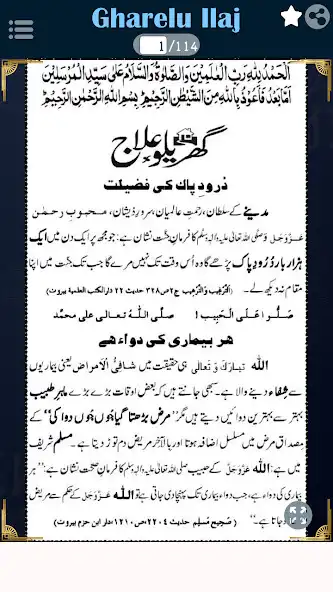 Gharelu Ilaj
1 /114
اَلْحَمْدُ لِلّٰہِ رَبِّ الْعٰلَمِیْنَ وَالصَّلٰوۃُ وَالسَّلَامُ عَلٰی سَیِّدِ الْمُرْسَلِیْنَ
اَمَّا بَعْدُ فَاَعُوْذُ بِاللّٰہِ مِنَ الشَّیْطٰنِ الرَّجِیْمِ ؕ بِسْمِ اللّٰہِ الرَّحْمٰنِ الرَّحِیْمِ ؕ
گھریلو علاج
دُرُودِ پاک کی فضیلت
مدینے کے سلطان، رحمتِ عالمیان، سرورِ ذیشان، محبوبِ رحمٰن
عَزَّوَجَلَّ وَصلَّی اللہ تعالیٰ علیہ واٰلہٖ وسلَّم کا فرمانِ جنّت نشان ہے: جو مجھ پر ایک دن میں ایک
ہزار بار دُرُودِ پاک پڑھے گا وہ اُس وقت تک نہیں مرے گا جب تک جنّت میں اپنا
مقام نہ دیکھ لے۔ (اَلتَّرغِیب وَالتَّرہِیب ج۲ ص۳۲۸ حدیث ۲۲ دارالکتب العلمیۃ بیروت)
صَلُّوا عَلَی الْحَبِیب! صلَّی اللہُ تعالٰی علٰی محمَّد
ھر بیماری کی دواء ھے
اللہ تَبَارَکَ وَ تَعَالٰی ہی حقیقت میں شَافِیُ الْاَمراض یعنی بیماریوں
سے شِفاء دینے والا ہے۔ سبھی جانتے ہیں کہ بعض اوقات بڑے بڑے ماہر طبیب
بہتر سے بہترین دوائیں دیتے ہیں مگر ”مرض بڑھتا گیا جُوں جُوں دوا کی“ کے
مصداق مرض میں مسلسل اضافہ ہوتا اور بالآخر مریض دم توڑ دیتا ہے۔ مسلم شریف
میں ہے: اللہ عَزَّوَجَلَّ کے حبیب صلَّی اللہ تعالیٰ علیہ واٰلہٖ وسلَّم کا فرمانِ صحّت نشان ہے: ”ہر
بیماری کی دواء ہے، جب دواء بیماری تک پہنچا دی جاتی ہے تو اللہ عَزَّوَجَلَّ کے حکم سے مریض
جاتا ہے۔“ (صَحِیح مُسلِم حدیث ۲۲۰۴، ص ۱۲۱۰، دار ابن حزم بیروت)